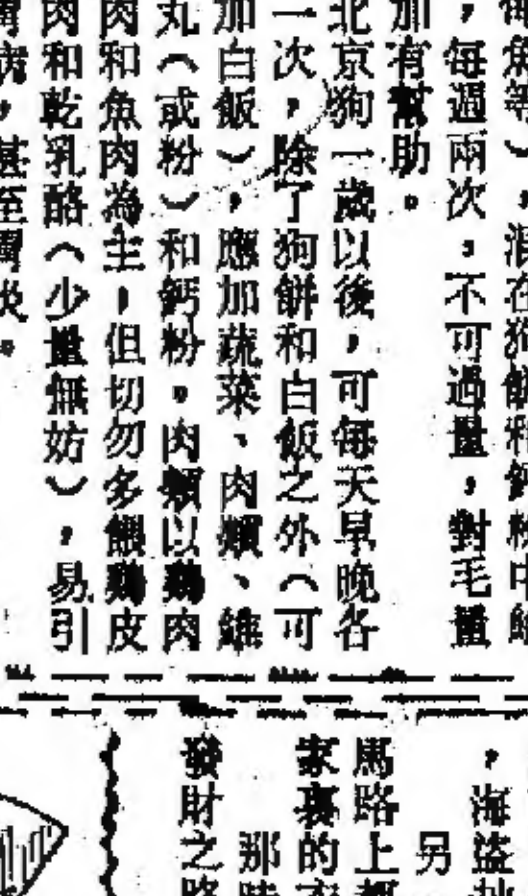 魚等），混在狗餅和鈣粉中
，每過兩次，不可過量，對毛量
加有幫助。
北京狗一歲以後，可每天早晚各
一次，除了狗餅和白飯之外（可
加白飯），應加蔬菜、肉類、維
丸（或粉）和鈣粉。肉類以鷄肉
肉和魚肉為主，但切勿多餵鷄皮
肉和乾乳酪（少量無妨），易引
胃病，甚至胃炎。
，海盜
另
馬路上
家裏的
那
發財之路